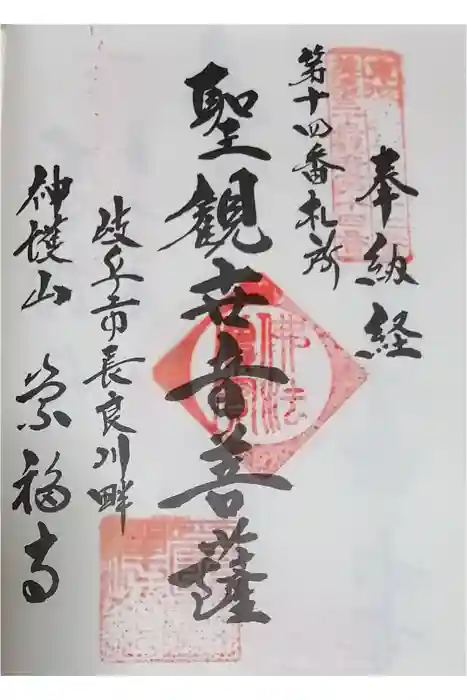 奉納経
第十四番札所
聖観世音菩薩
岐阜市長良川畔
神護山 崇福寺
佛法